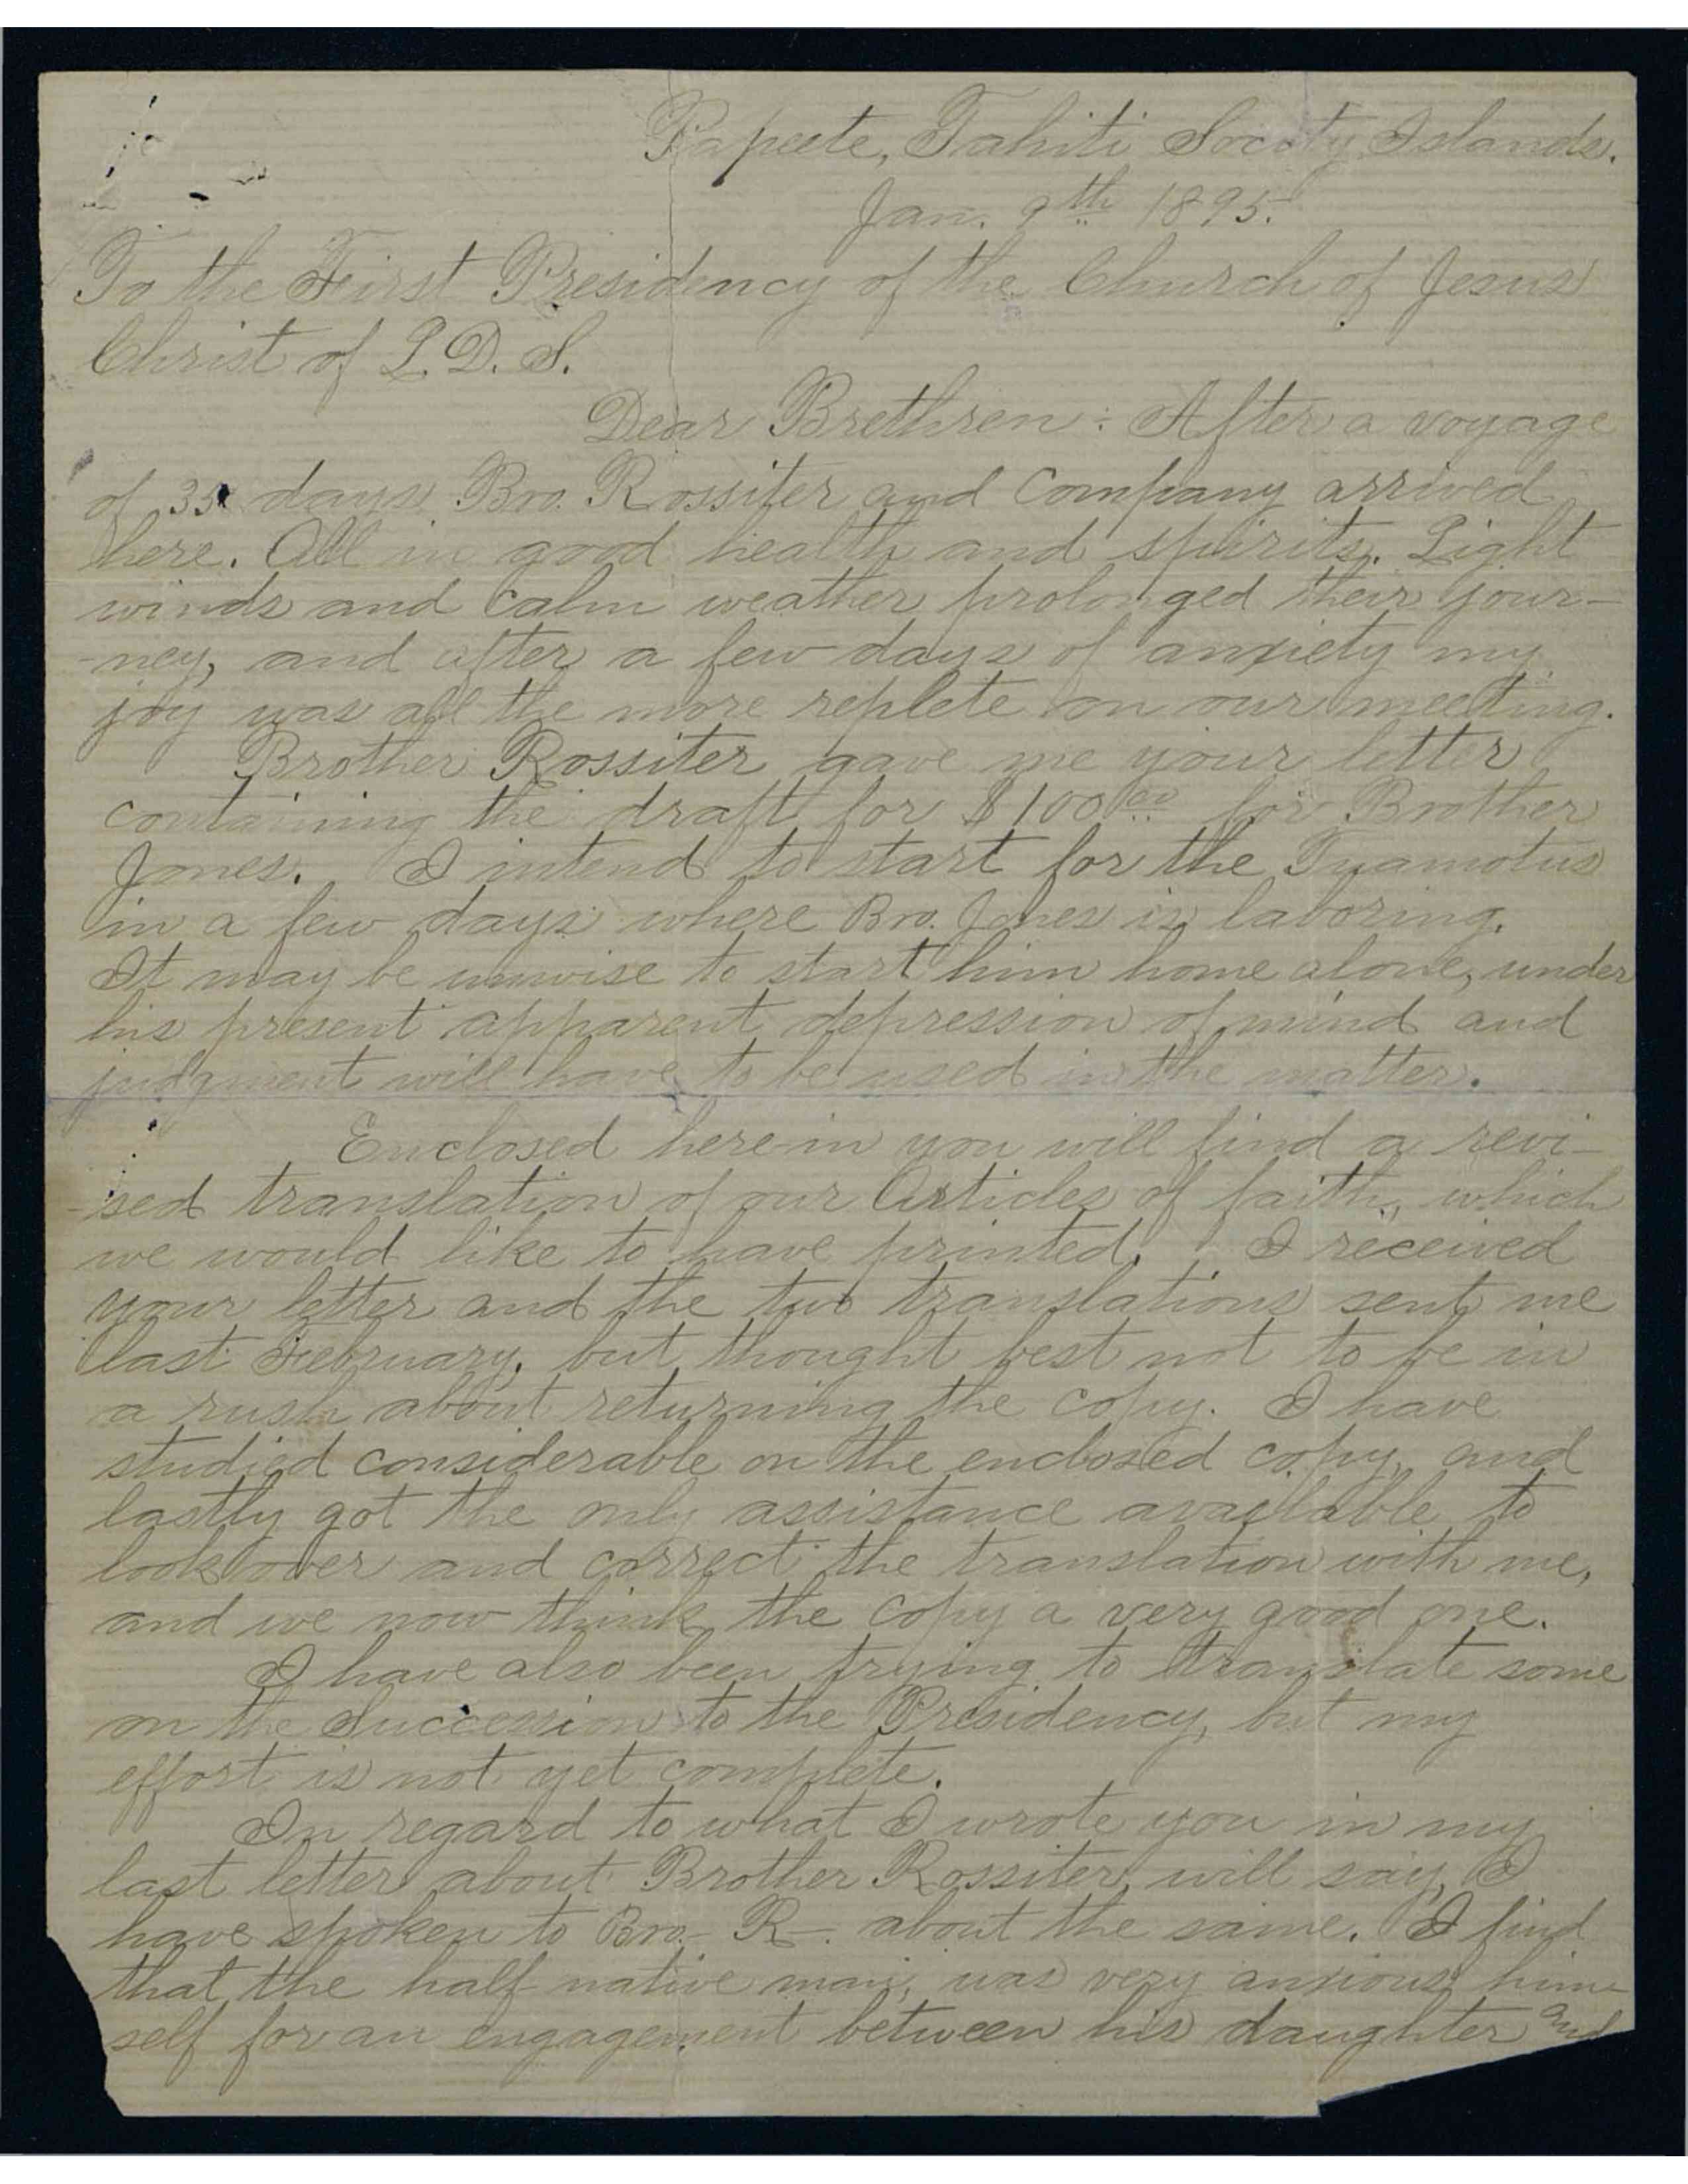 Papeete, Tahiti Society Islands.
Jan. 9th 1895.
To the First Presidency of the Church of Jesus
Christ of L. D. S.
Dear Brethren: After a voyage
of 35 days Bro. Rossiter and Company arrived
here. All in good health and spirits. Light
winds and calm weather prolonged their jour-
-ney, and after a few days of anxiety my
joy was all the more replete on our meeting.
Brother Rossiter gave me your letter
containing the draft for $100.00 for Brother
Jones. I intend to start for the Tuamotus
in a few days where Bro. Jones is laboring.
It may be unwise to start him home alone, under
his present apparent depression of mind and
judgment will have to be used in the matter.
Enclosed here-in you will find a revi-
-sed translation of our Articles of faith, which
we would like to have printed. I received
your letter and the two translations sent me
last February, but thought best not to be in
a rush about returning the copy. I have
studied considerable on the enclosed copy, and
lastly got the only assistance available to
look over and correct the translation with me,
and we now think the copy a very good one.
I have also been trying to translate some
on the Succession to the Presidency, but my
effort is not yet complete.
In regard to what I wrote you in my
last letter about Brother Rossiter, will say, I
have spoken to Bro. R-. about the same. I find
that the half-native man, was very anxious him-
self for an engagement between his daughter and